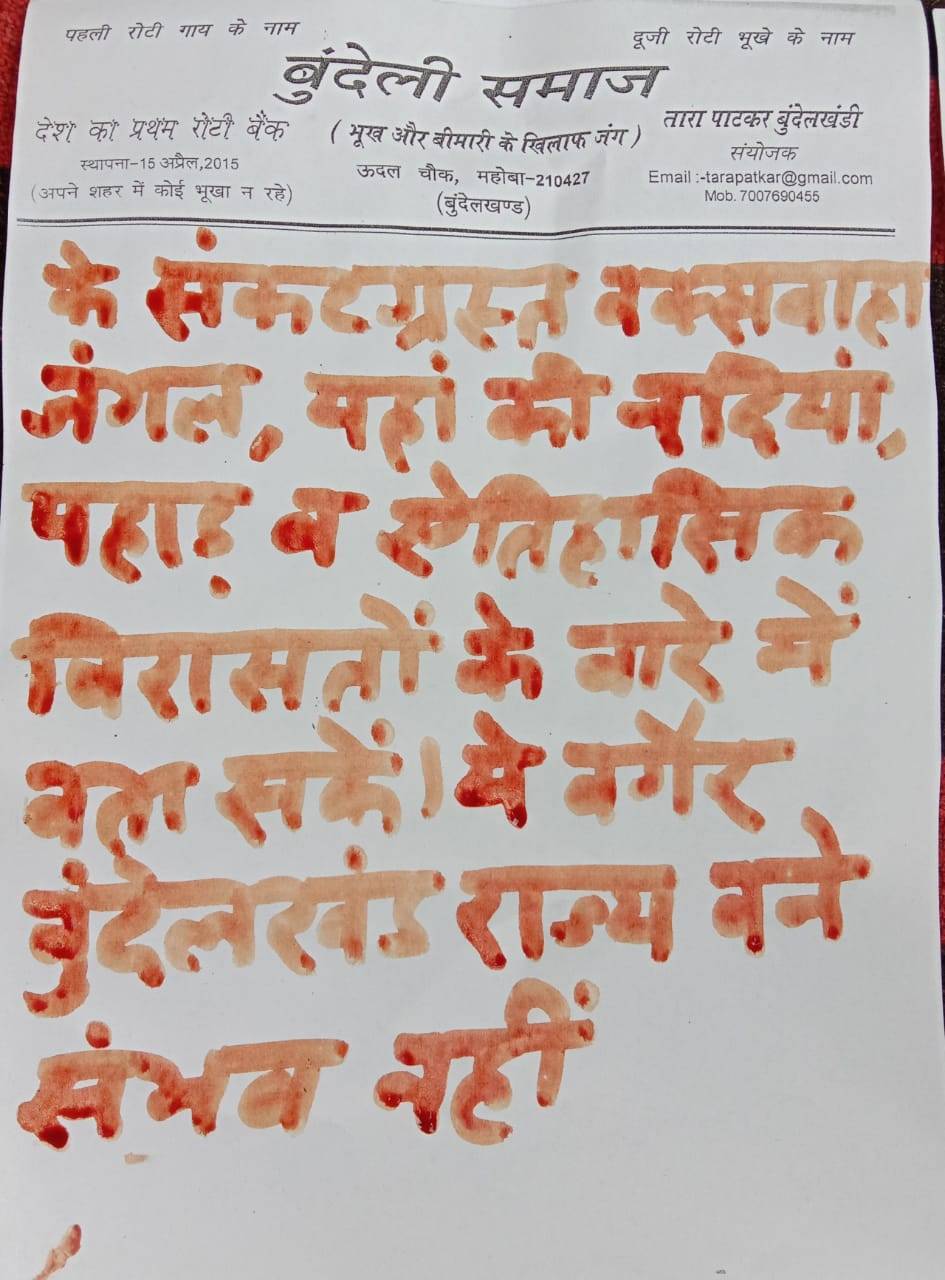 पहली रोटी गाय के नाम
दूजी रोटी भूखे के नाम
बुंदेली समाज
देश का प्रथम रोटी बैंक
स्थापना-15 अप्रैल,2015
(अपने शहर में कोई भूखा न रहे)
( भूख और बीमारी के खिलाफ जंग )
ऊदल चौक, महोबा-210427
(बुंदेलखण्ड)
तारा पाटकर बुंदेलखंडी
संयोजक
Email :-tarapatkar@gmail.com
Mob. 7007690455
के संकटग्रस्त बक्सवाहा
जंगल, यहां की नदियां,
पहाड़ व ऐतिहासिक
विरासतों के बारे में
बता सकें। ये बगैर
बुंदेलखंड राज्य बने
संभव नहीं